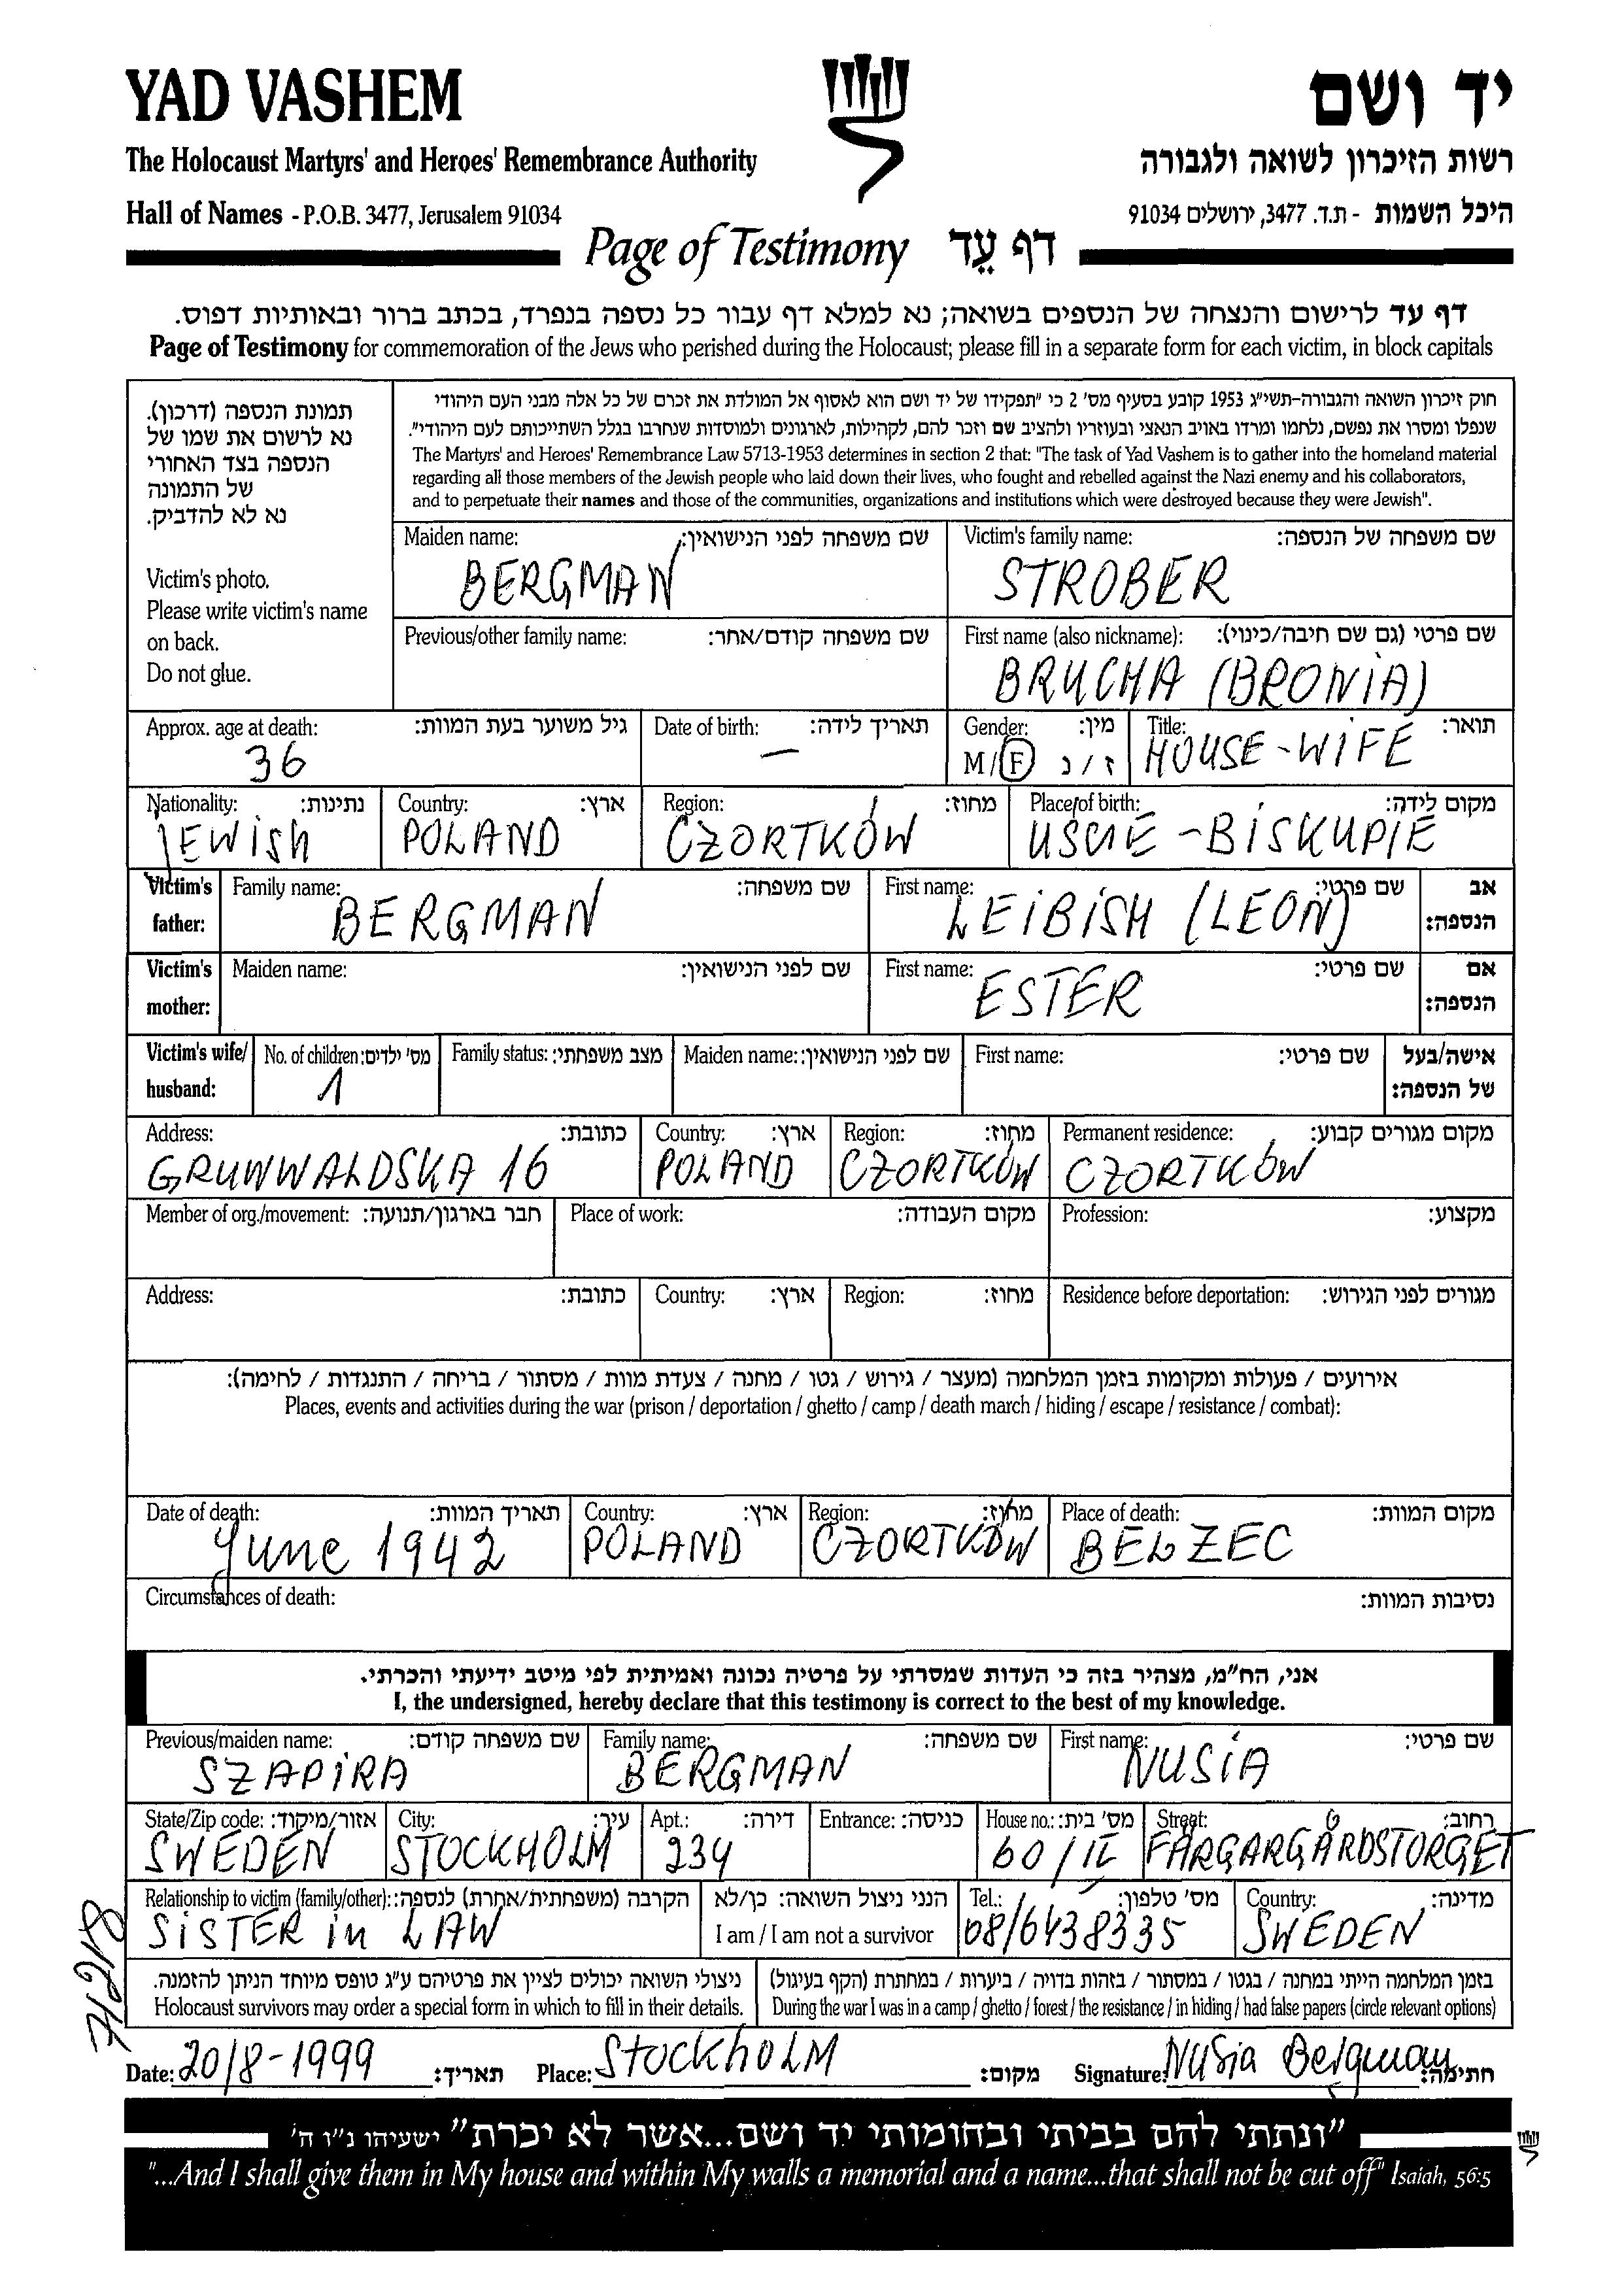 YAD VASHEM
יד ושם
The Holocaust Martyrs' and Heroes' Remembrance Authority
רשות הזיכרון לשואה ולגבורה
Hall of Names - P.O.B. 3477, Jerusalem 91034
היכל השמות - ת.ד. 3477, ירושלים 91034
Page of Testimony דף עֵד
דף עד לרישום והנצחה של הנספים בשואה; נא למלא דף עבור כל נספה בנפרד, בכתב ברור ובאותיות דפוס.
Page of Testimony for commemoration of the Jews who perished during the Holocaust; please fill in a separate form for each victim, in block capitals
תמונת הנספה (דרכון).
נא לרשום את שמו של
הנספה בצד האחורי
של התמונה
נא לא להדביק.
Victim's photo.
Please write victim's name
on back.
Do not glue.
חוק זיכרון השואה והגבורה-תשי"ג 1953 קובע בסעיף מס' 2 כי "תפקידו של יד ושם הוא לאסוף אל המולדת את זכרם של כל אלה מבני העם היהודי
שנפלו ומסרו את נפשם, נלחמו ומרדו באויב הנאצי ובעוזריו ולהציב שם וזכר להם, לקהילות, לארגונים ולמוסדות שנחרבו בגלל השתייכותם לעם היהודי".
The Martyrs' and Heroes' Remembrance Law 5713-1953 determines in section 2 that: "The task of Yad Vashem is to gather into the homeland material
regarding all those members of the Jewish people who laid down their lives, who fought and rebelled against the Nazi enemy and his collaborators,
and to perpetuate their names and those of the communities, organizations and institutions which were destroyed because they were Jewish".
Maiden name: שם משפחה לפני הנישואין:
BERGMAN
Victim's family name: שם משפחה של הנספה:
STROBER
Previous/other family name: שם משפחה קודם/אחר:
First name (also nickname): שם פרטי (גם שם חיבה/כינוי):
BRUCHA (BRONIA)
Approx. age at death: גיל משוער בעת המוות:
36
Date of birth: תאריך לידה:
—
Gender: מין:
M / F ז / נ
Title: תואר:
HOUSE-WIFE
Nationality: נתינות:
JEWISH
Country: ארץ:
POLAND
Region: מחוז:
CZORTKÓW
Place of birth: מקום לידה:
UŚCIE-BISKUPIE
Victim's father:
Family name: שם משפחה:
BERGMAN
First name: שם פרטי:
LEIBISH (LEON)
אב הנספה:
Victim's mother:
Maiden name: שם לפני הנישואין:
First name: שם פרטי:
ESTER
אם הנספה:
Victim's wife/ husband:
No. of children: מס' ילדים:
1
Family status: מצב משפחתי:
Maiden name: שם לפני הנישואין:
First name: שם פרטי:
אישה/בעל של הנספה:
Address: כתובת:
GRUNWALDSKA 16
Country: ארץ:
POLAND
Region: מחוז:
CZORTKÓW
Permanent residence: מקום מגורים קבוע:
CZORTKÓW
Member of org./movement: חבר בארגון/תנועה:
Place of work: מקום העבודה:
Profession: מקצוע:
Address: כתובת:
Country: ארץ:
Region: מחוז:
Residence before deportation: מגורים לפני הגירוש:
אירועים / פעולות ומקומות בזמן המלחמה (מעצר / גירוש / גטו / מחנה / צעדת מוות / מסתור / בריחה / התנגדות / לחימה):
Places, events and activities during the war (prison / deportation / ghetto / camp / death march / hiding / escape / resistance / combat):
Date of death: תאריך המוות:
June 1942
Country: ארץ:
POLAND
Region: מחוז:
CZORTKÓW
Place of death: מקום המוות:
BEŁZEC
Circumstances of death: נסיבות המוות:
אני, הח"מ, מצהיר בזה כי העדות שמסרתי על פרטיה נכונה ואמיתית לפי מיטב ידיעתי והכרתי.
I, the undersigned, hereby declare that this testimony is correct to the best of my knowledge.
Previous/maiden name: שם משפחה קודם:
SZAPIRA
Family name: שם משפחה:
BERGMAN
First name: שם פרטי:
NUSIA
State/Zip code: אזור/מיקוד:
SWEDEN
City: עיר:
STOCKHOLM
Apt.: דירה:
234
Entrance: כניסה:
House no.: מס' בית:
60/II
Street: רחוב:
FÄRGARGÅRDSTORGET
Relationship to victim (family/other): הקרבה (משפחתית/אחרת) לנספה:
SISTER in LAW
הנני ניצול השואה: כן/לא
I am / I am not a survivor
Tel.: מס' טלפון:
08/6438335
Country: מדינה:
SWEDEN
ניצולי השואה יכולים לציין את פרטיהם ע"ג טופס מיוחד הניתן להזמנה.
Holocaust survivors may order a special form in which to fill in their details.
בזמן המלחמה הייתי במחנה / בגטו / במסתור / בזהות בדויה / ביערות / במחתרת (הקף בעיגול)
During the war I was in a camp / ghetto / forest / the resistance / in hiding / had false papers (circle relevant options)
Date: 20/8-1999 תאריך: Place: STOCKHOLM מקום: Signature: Nusia Bergman חתימה:
"ונתתי להם בביתי ובחומותי יד ושם...אשר לא יכרת" ישעיהו נ"ו ה'
"...And I shall give them in My house and within My walls a memorial and a name...that shall not be cut off" Isaiah, 56:5